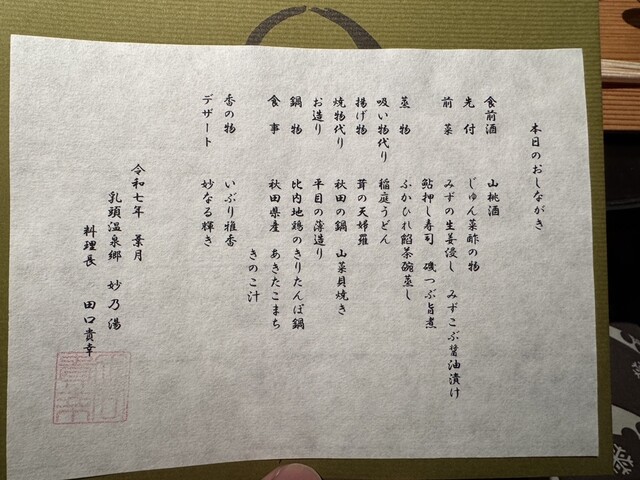 本日のおしながき
食前酒　山桃酒
先付　じゅん菜酢の物
前菜　みずの生姜浸し　みずこぶ醤油漬け
鮎押し寿司　磯つぶ旨煮
蒸物　ふかひれ餡茶碗蒸し
吸い物代り　稲庭うどん
揚げ物　茸の天婦羅
焼物代り　秋田の鍋　山菜貝焼き
お造り　平目の薄造り
鍋物　比内地鶏のきりたんぽ鍋
食事　秋田県産　あきたこまち
きのこ汁
香の物　いぶり雅香
デザート　妙なる輝き
令和七年　葉月
乳頭温泉郷　妙乃湯
料理長　田口貴幸